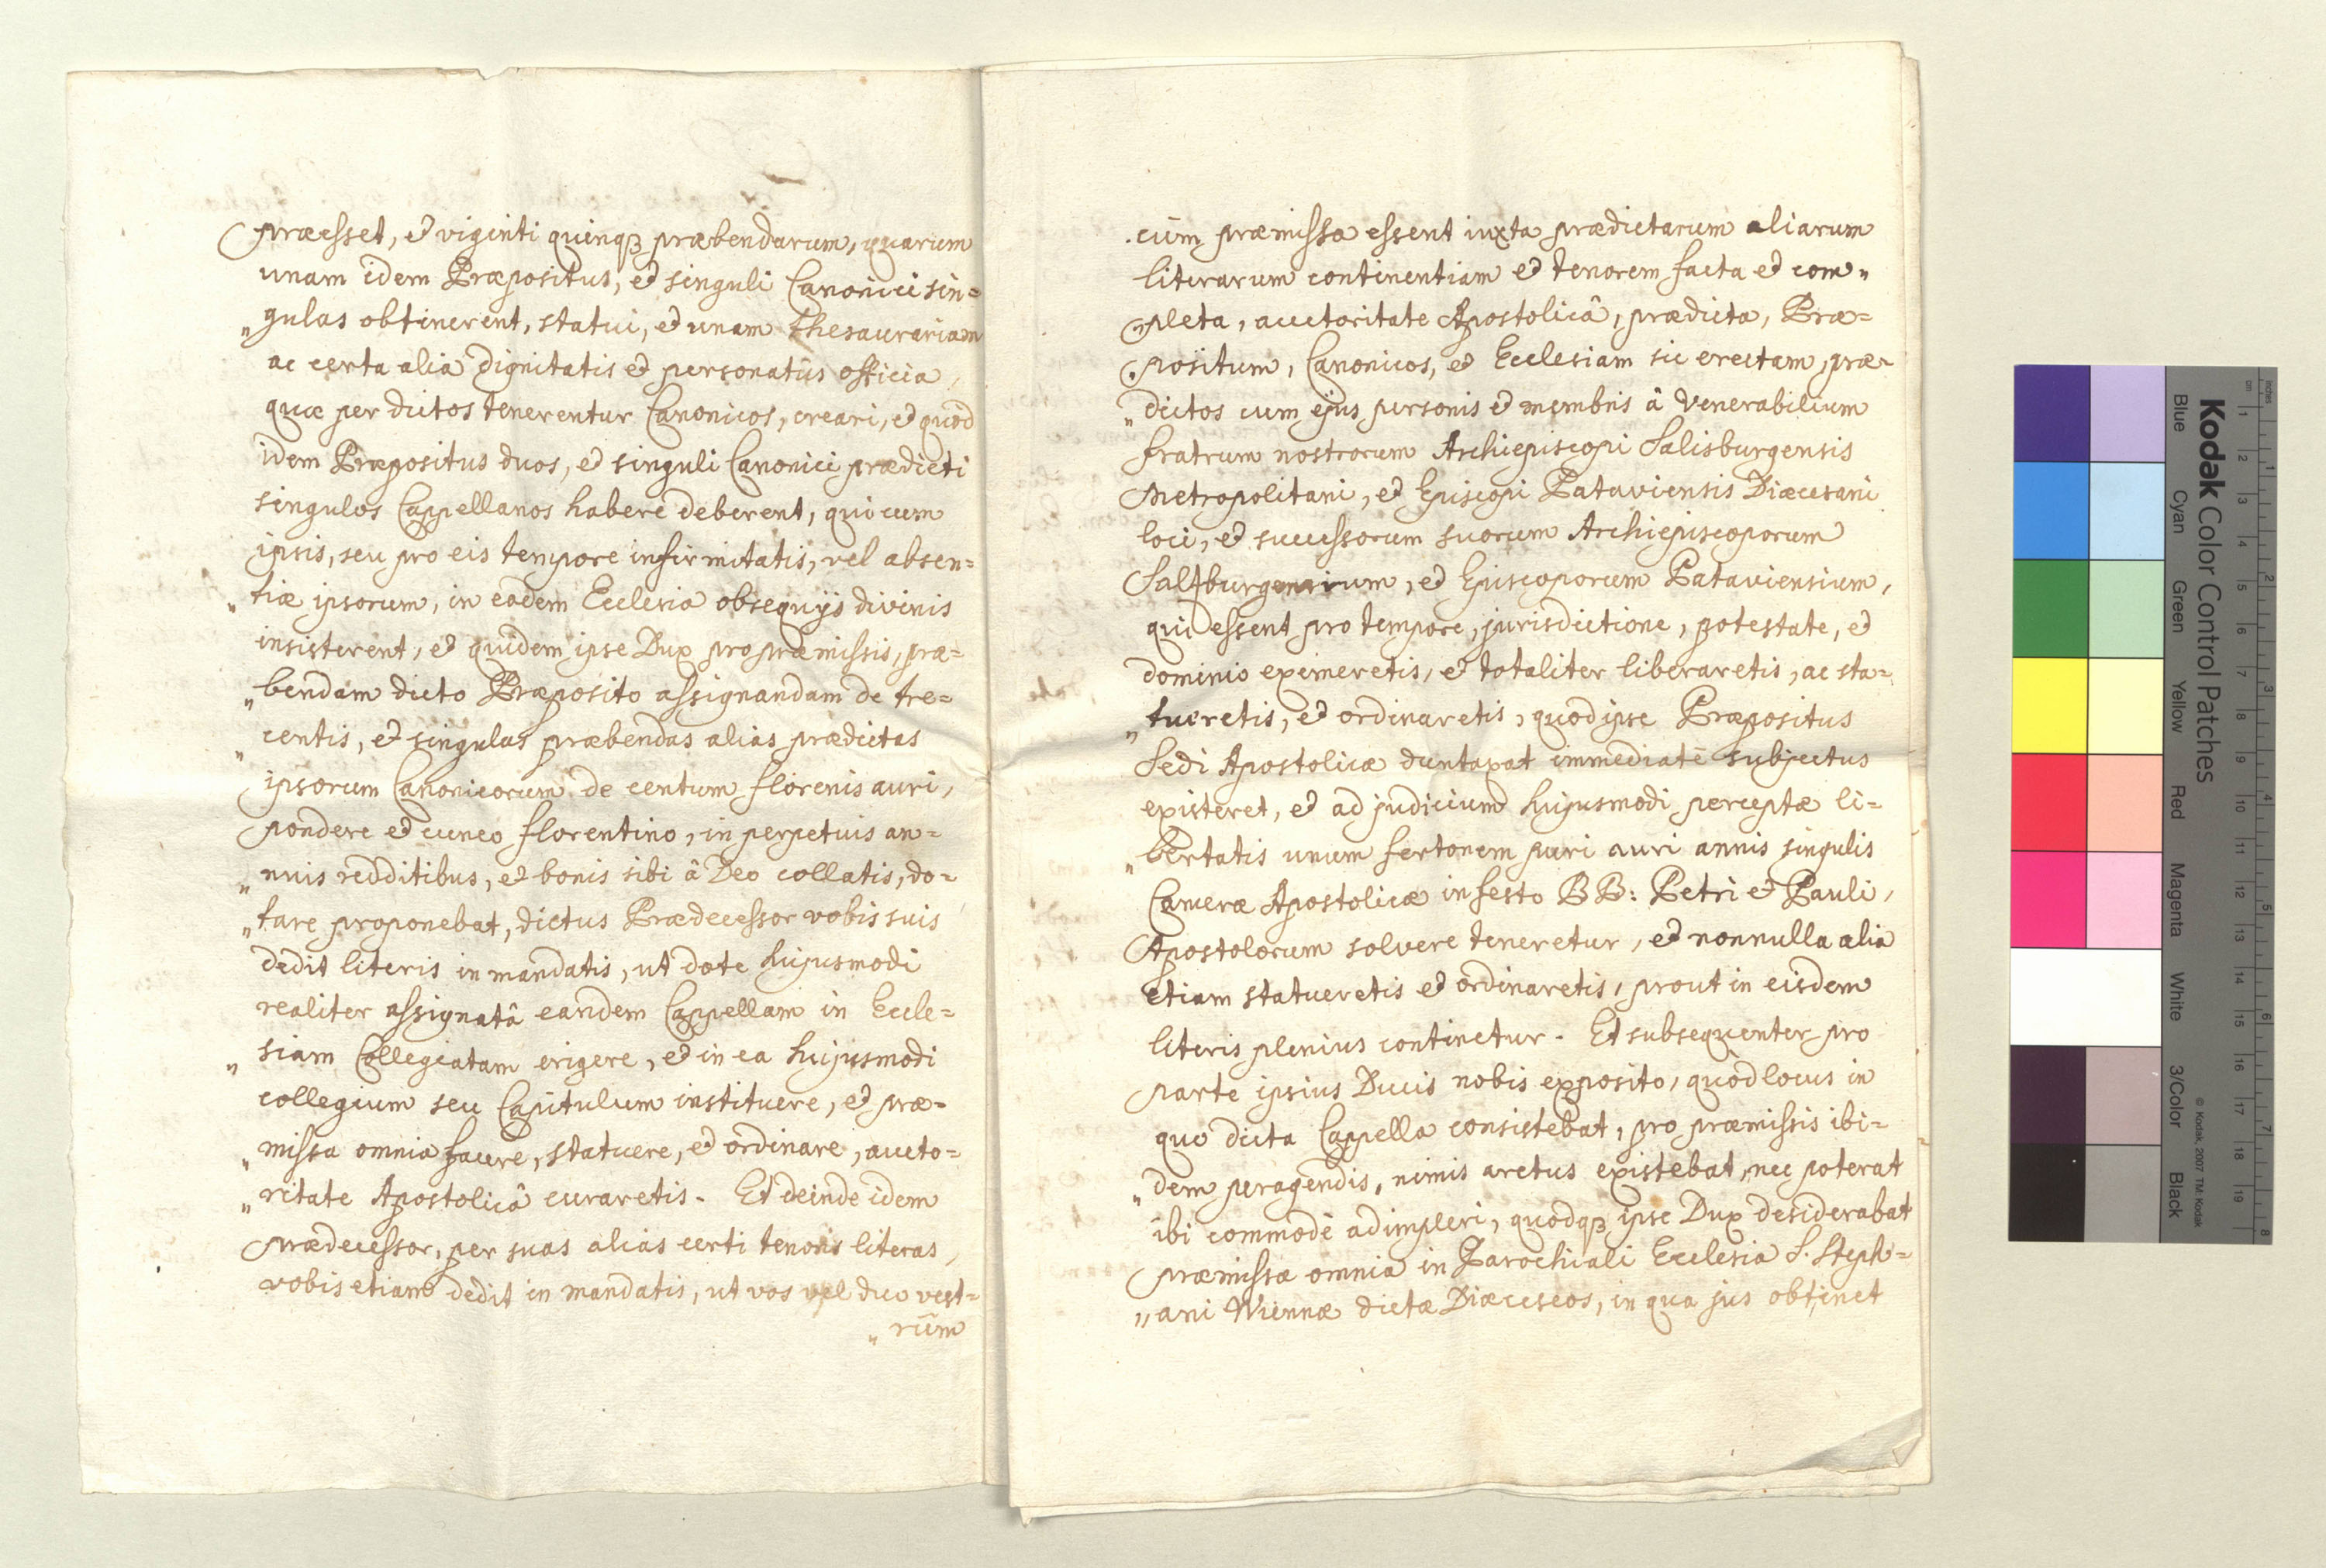 præesset, et viginti quinqꝫ præbendarum, quarum
unam idem Præpositus, et singuli Canonici sin=
„gulas obtinerent, statui, et unam thesaurariam
ac certa alia dignitatis et personatûs officia,
quæ per dictos tenerentur Canonicos, creari, et quod
idem Præpositus duos, et singuli Canonici prædicti
singulos Cappellanos habere deberent, qui cum
ipsis, seu pro eis tempore infirmitatis, vel absen=
„tiæ ipsorum, in eadem Ecclesia obsequijs divinis
insisterent, et quidem ipse Dux pro præmissis, præ=
„bendam dicto Præposito assignandam de tre=
„centis, et singulas præbendas alias prædictas
ipsorum Canonicorum de centum florenis auri,
pondere et cuneo florentino, in perpetuis an=
„nuis redditibus, et bonis sibi â Deo collatis, do=
„tare proponebat, dictus Prædecessor vobis suis
dedit literis in mandatis, ut dote hujusmodi
realiter assignatâ eandem Cappellam in Eccle=
„siam Collegiatam erigere, et in ea hujusmodi
collegium seu Capitulum instituere, et præ=
„missa omnia facere, statuere, et ordinare, aucto=
„ritate Apostolicâ curaretis. Et deinde idem
prædecessor, per suas alias certi tenoris literas,
vobis etiam dedit in mandatis, ut vos vel duo vest=
„rûm
cùm præmissa essent iuxta prædictarum aliarum
literarum continentiam et tenorem facta et com„
„pleta, auctoritate Apostolicâ, prædicta, Præ=
positum, Canonicos, et Ecclesiam sic erectam præ=
„dictos cum ejus personis et membris â Venerabilium
fratrum nostrorum Archiepiscopi Salisburgensis
Metropolitani, et Episcopi Pataviensis Diæcesani
loci, et successorum suorum Archiepiscoporum
Saltzburgensium, et Episcoporum Pataviensium,
qui essent pro tempore, jurisdictione, potestate, et
dominio eximeretis, et totaliter liberaretis, ac sta=
„tueretis, et ordinaretis, quod ipse Præpositus
Sedi Apostolicæ duntaxat immediatè subjectus
existeret, et ad judicium hujusmodi perceptæ li=
„bertatis unum fertonem puri auri annis singulis
Cameræ Apostolicæ in festo BB: Petri et Pauli,
Apostolorum solvere teneretur, et nonnulla alia
etiam statueretis et ordinaretis, prout in eisdem
literis plenius continetur. Et subsequenter pro
parte ipsius Ducis nobis exposito, quòd locus in
quo dicta Cappella consistebat, pro præmissis ibi=
„dem peragendis, nimis arctus existebat, nec poterat
ibi commodè adimpleri, quodqꝫ ipse Dux desiderabat
præmissa omnia in Parochiali Ecclesia S. Steph=
„ani Wiennæ dictæ Diæceseos, in qua jus obtinet
Kodak Color Control Patches
Blue Cyan Green Yellow Red Magenta White 3/Color Black
© Kodak, 2007 TM: Kodak
cm 1 2 3 4 5 6 7 8 9 10 11 12 13 14 15 16 17 18 19
inches 1 2 3 4 5 6 7 8